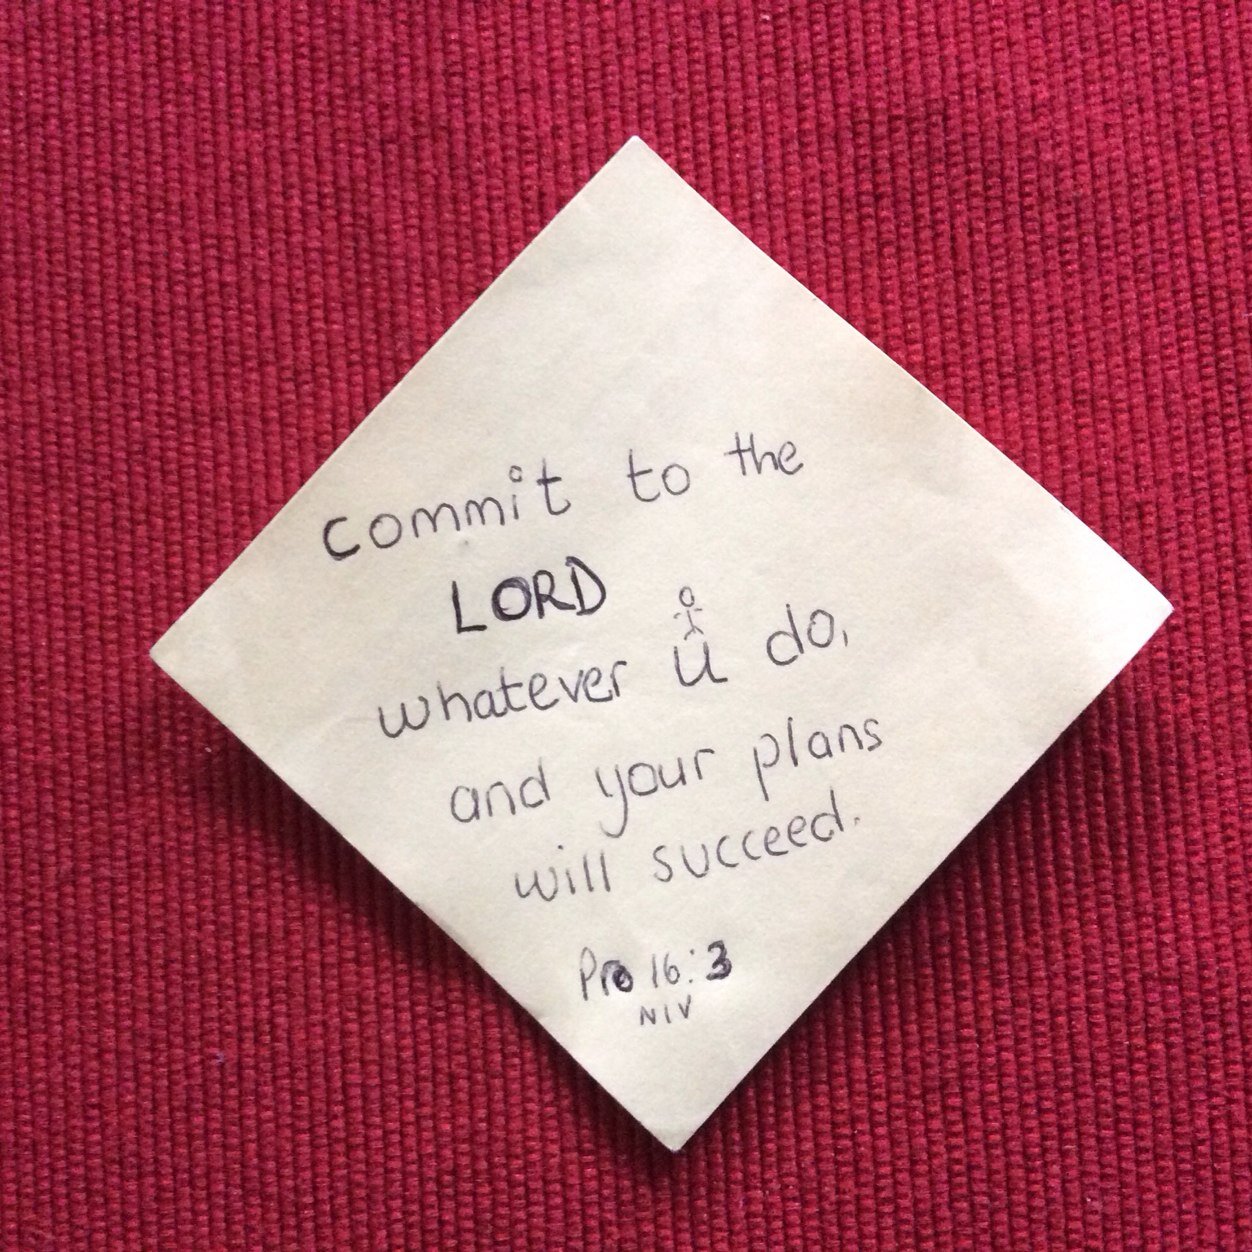 commit to the
LORD
whatever u do,
and your plans
will succeed.
Pro 16:3
NIV